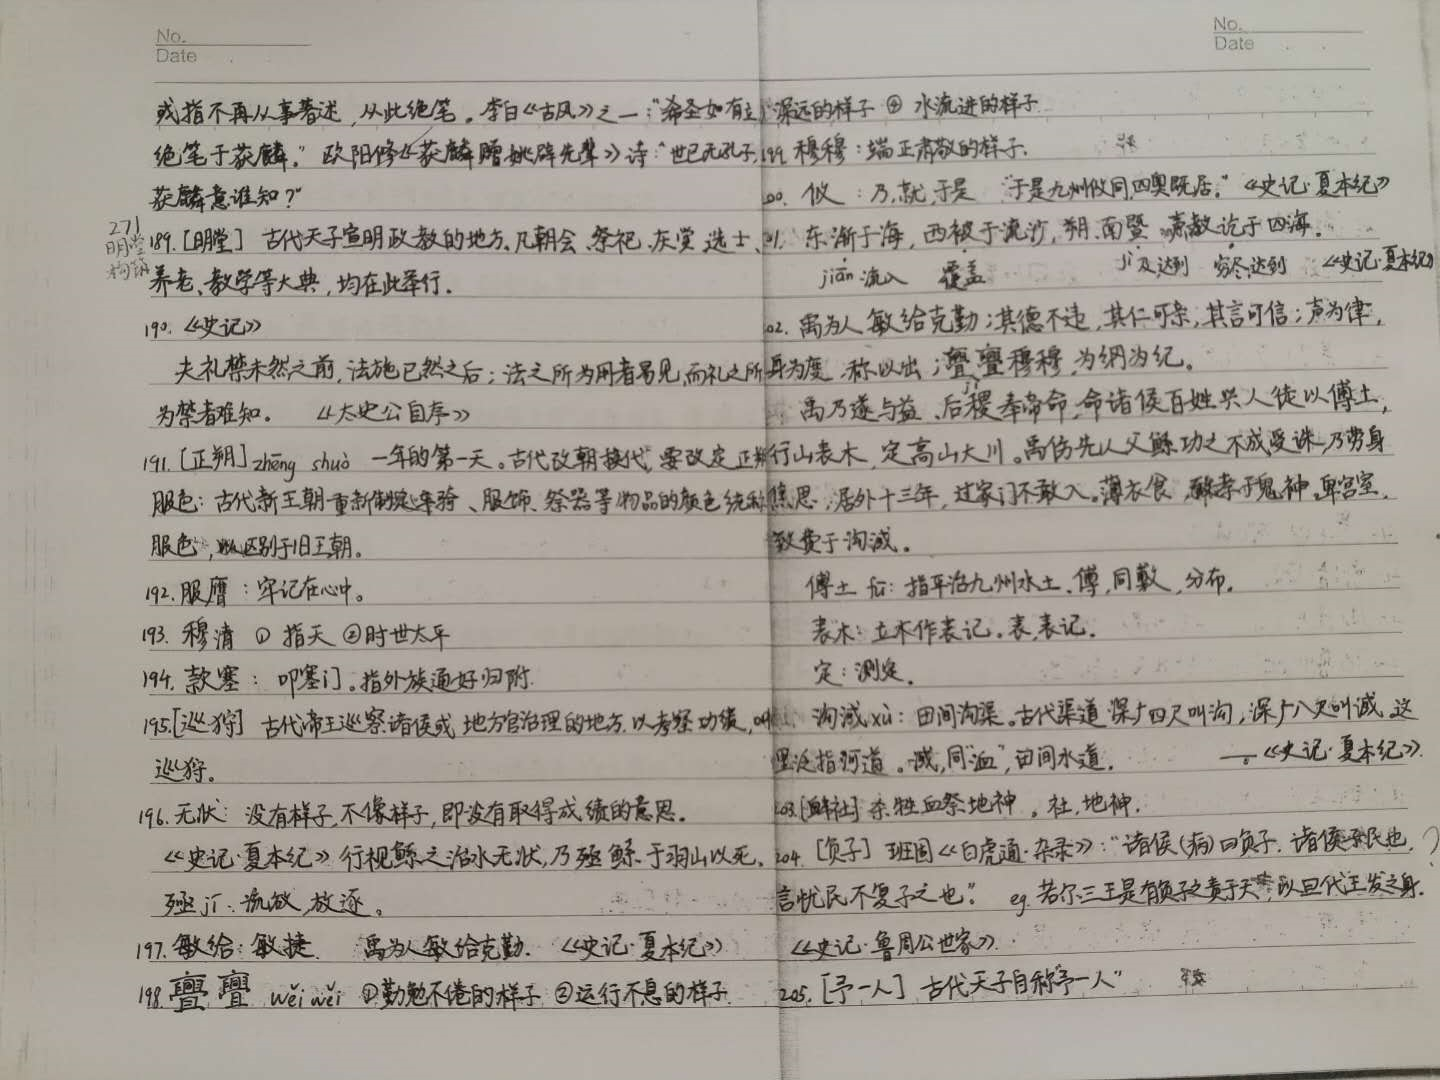 No.
Date
或指不再从事著述，从此绝笔。李白《古风》之一："希圣如有立，
绝笔于获麟。"欧阳修《获麟赠姚辟先辈》诗："世已无孔子，
获麟意谁知？"
271
明堂
189.[明堂] 古代天子宣明政教的地方。凡朝会、祭祀、庆赏、选士、
养老、教学等大典，均在此举行。
190.《史记》
夫礼禁未然之前，法施已然之后；法之所为用者易见，而礼之所
为禁者难知。 《太史公自序》
191.[正朔] zhēng shuò 一年的第一天。古代改朝换代，要改定正朔
服色：古代新王朝重新制定车骑、服饰、祭器等物品的颜色统称
服色，以区别于旧王朝。
192.服膺：牢记在心中。
193.穆清 ①指天 ②时世太平
194.款塞：叩塞门。指外族通好归附.
195.[巡狩] 古代帝王巡察诸侯或地方官治理的地方.以考察功绩，叫
巡狩。
196.无状：没有样子，不像样子，即没有取得成绩的意思。
《史记·夏本纪》行视鲧之治水无状，乃殛鲧于羽山以死。
殛jí：流放，放逐。
197.敏给：敏捷. 禹为人敏给克勤.《史记·夏本纪》
198.亹亹 wěi wěi ①勤勉不倦的样子 ②运行不息的样子
No.
Date
深远的样子 ④水流进的样子
199.穆穆：端正肃敬的样子.
00. 攸：乃，就，于是 "于是九州攸同，四奥既居。"《史记·夏本纪》
01. 东渐于海，西被于流沙，朔、南暨，声教讫于四海。
jiān 流入 覆盖 jì 及，达到 穷尽，达到 《史记·夏本纪》
02. 禹为人敏给克勤；其德不违，其仁可亲，其言可信；声为律，
身为度，称以出；亹亹穆穆，为纲为纪。
禹乃遂与益、后稷奉帝命，命诸侯百姓兴人徒以傅土，
行山表木，定高山大川。禹伤先人父鲧功之不成受诛，乃劳身
焦思，居外十三年，过家门不敢入。薄衣食，致孝于鬼神。卑宫室，
致费于沟淢。
傅土 fū：指平治九州水土.傅，同敷，分布。
表木：立木作表记。表，表记.
定：测定。
沟淢xù：田间沟渠。古代渠道深广四尺叫沟，深广八尺叫淢。这
里泛指河道。淢，同"洫"，田间水道. —《史记·夏本纪》
03.[衈社] 杀牲血祭地神。社，地神.
204.[负子] 班固《白虎通·杂录》："诸侯(病)曰负子.诸侯子民也，？
言忧民不复子之也。" eg.若尔三王是有负子之责于天，以旦代王发之身.
《史记·鲁周公世家》
205.[予一人] 古代天子自称"予一人"